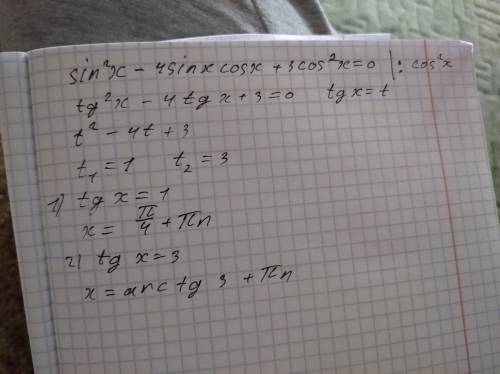 sin²x - 4sinx cosx + 3cos²x = 0 |: cos²x
tg²x - 4tgx + 3 = 0 tgx = t
t² - 4t + 3
t₁ = 1 t₂ = 3
1) tg x = 1
x = π/4 + πn
2) tg x = 3
x = arctg 3 + πn